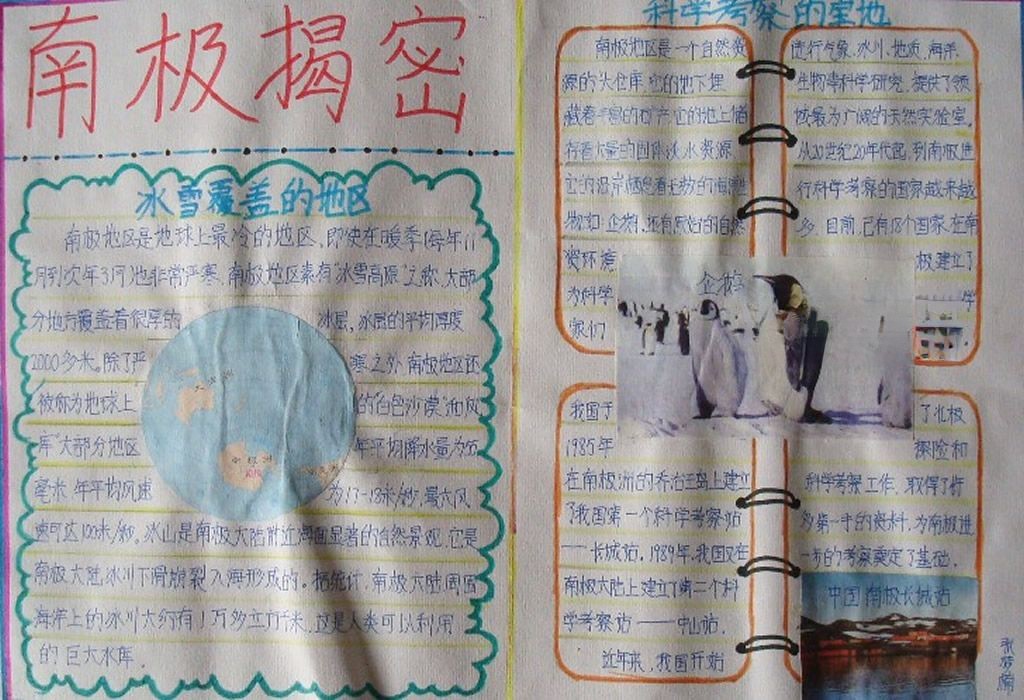 南极揭密
冰雪覆盖的地区
南极地区是地球上最冷的地区,即使在暖季(每年11
月到次年3月)也非常严寒,南极地区素有"冰雪高原"之称,大部
分地方覆盖着很厚的冰层,冰层的平均厚度
2000多米。除了严寒之外南极地区还
被称为地球上的"白色沙漠"和"风
库"大部分地区年平均降水量为55
毫米,年平均风速为17-18米/秒,最大风
速可达100米/秒。冰山是南极大陆附近海面显著的自然景观,它是
南极大陆冰川下滑崩裂入海形成的。据统计,南极大陆周围
海洋上的冰川大约有1万多立方千米,这是人类可以利用
的巨大水库.
科学考察的宝地
南极地区是一个自然资
源的大仓库,它的地下埋
藏着丰富的矿产,它的地上储
存着大量的固体淡水资源
它的沿岸栖息着无数的海洋生
物如:企鹅,还有原始的自然
资环境
为科学
家们
进行气象、冰川、地质、海洋、
生物等科学研究,提供了领
域最为广阔的天然实验室。
从20世纪20年代起,到南极进
行科学考察的国家越来越
多。目前,已有18个国家在南
极建立了
学
企鹅
我国于
1985年
在南极洲的乔治王岛上建立
了我国第一个科学考察站
——长城站。1989年,我国又在
南极大陆上建立了第二个科
学考察站——中山站。
近年来,我国开始
了北极
探险和
科学考察工作,取得了许
多第一手的资料,为南极进
一步的考察奠定了基础。
中国南极长城站